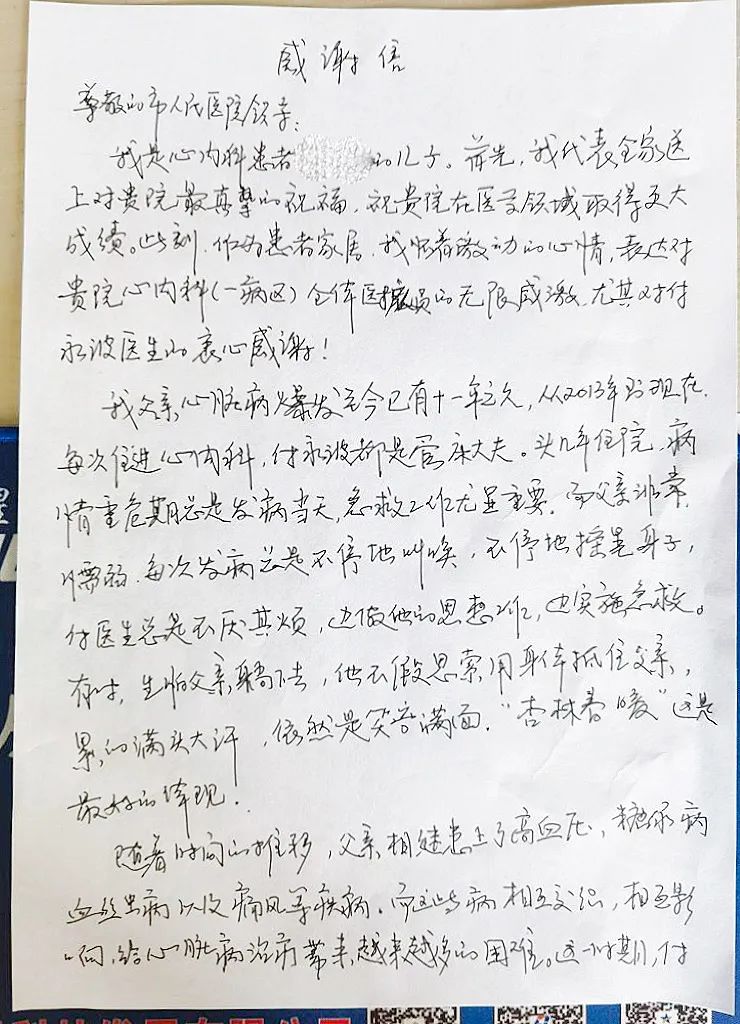 感谢信
尊敬的市人民医院领导:
我是心内科患者 的儿子。首先,我代表全家送
上对贵院最真挚的祝福,祝贵院在医学领域取得更大
成绩。此刻,作为患者家属,我怀着激动的心情,表达对
贵院心内科(一病区)全体医护人员的无限感激,尤其对付
永波医生的衷心感谢!
我父亲心脏病爆发至今已有十一年之久,从2013年到现在,
每次住进心内科,付永波都是管床大夫。头几年住院,病
情重危期总是发病当天,急救工作尤显重要,而父亲非常
懦弱,每次发病总是不停地叫唤,不停地摇晃身子,
付医生总是不厌其烦,边做他的思想工作,边实施急救。
有时,生怕父亲躺下去,他不假思索用身体抵住父亲,
累的满头大汗,依然是笑容满面,“杏林春暖”这是
最好的体现.
随着时间的推移,父亲相继患上了高血压,糖尿病
血 病以及痛风等疾病。而这些病相互交织,相互影
响,给心脏病治病带来越来越多的困难。这一时期,付